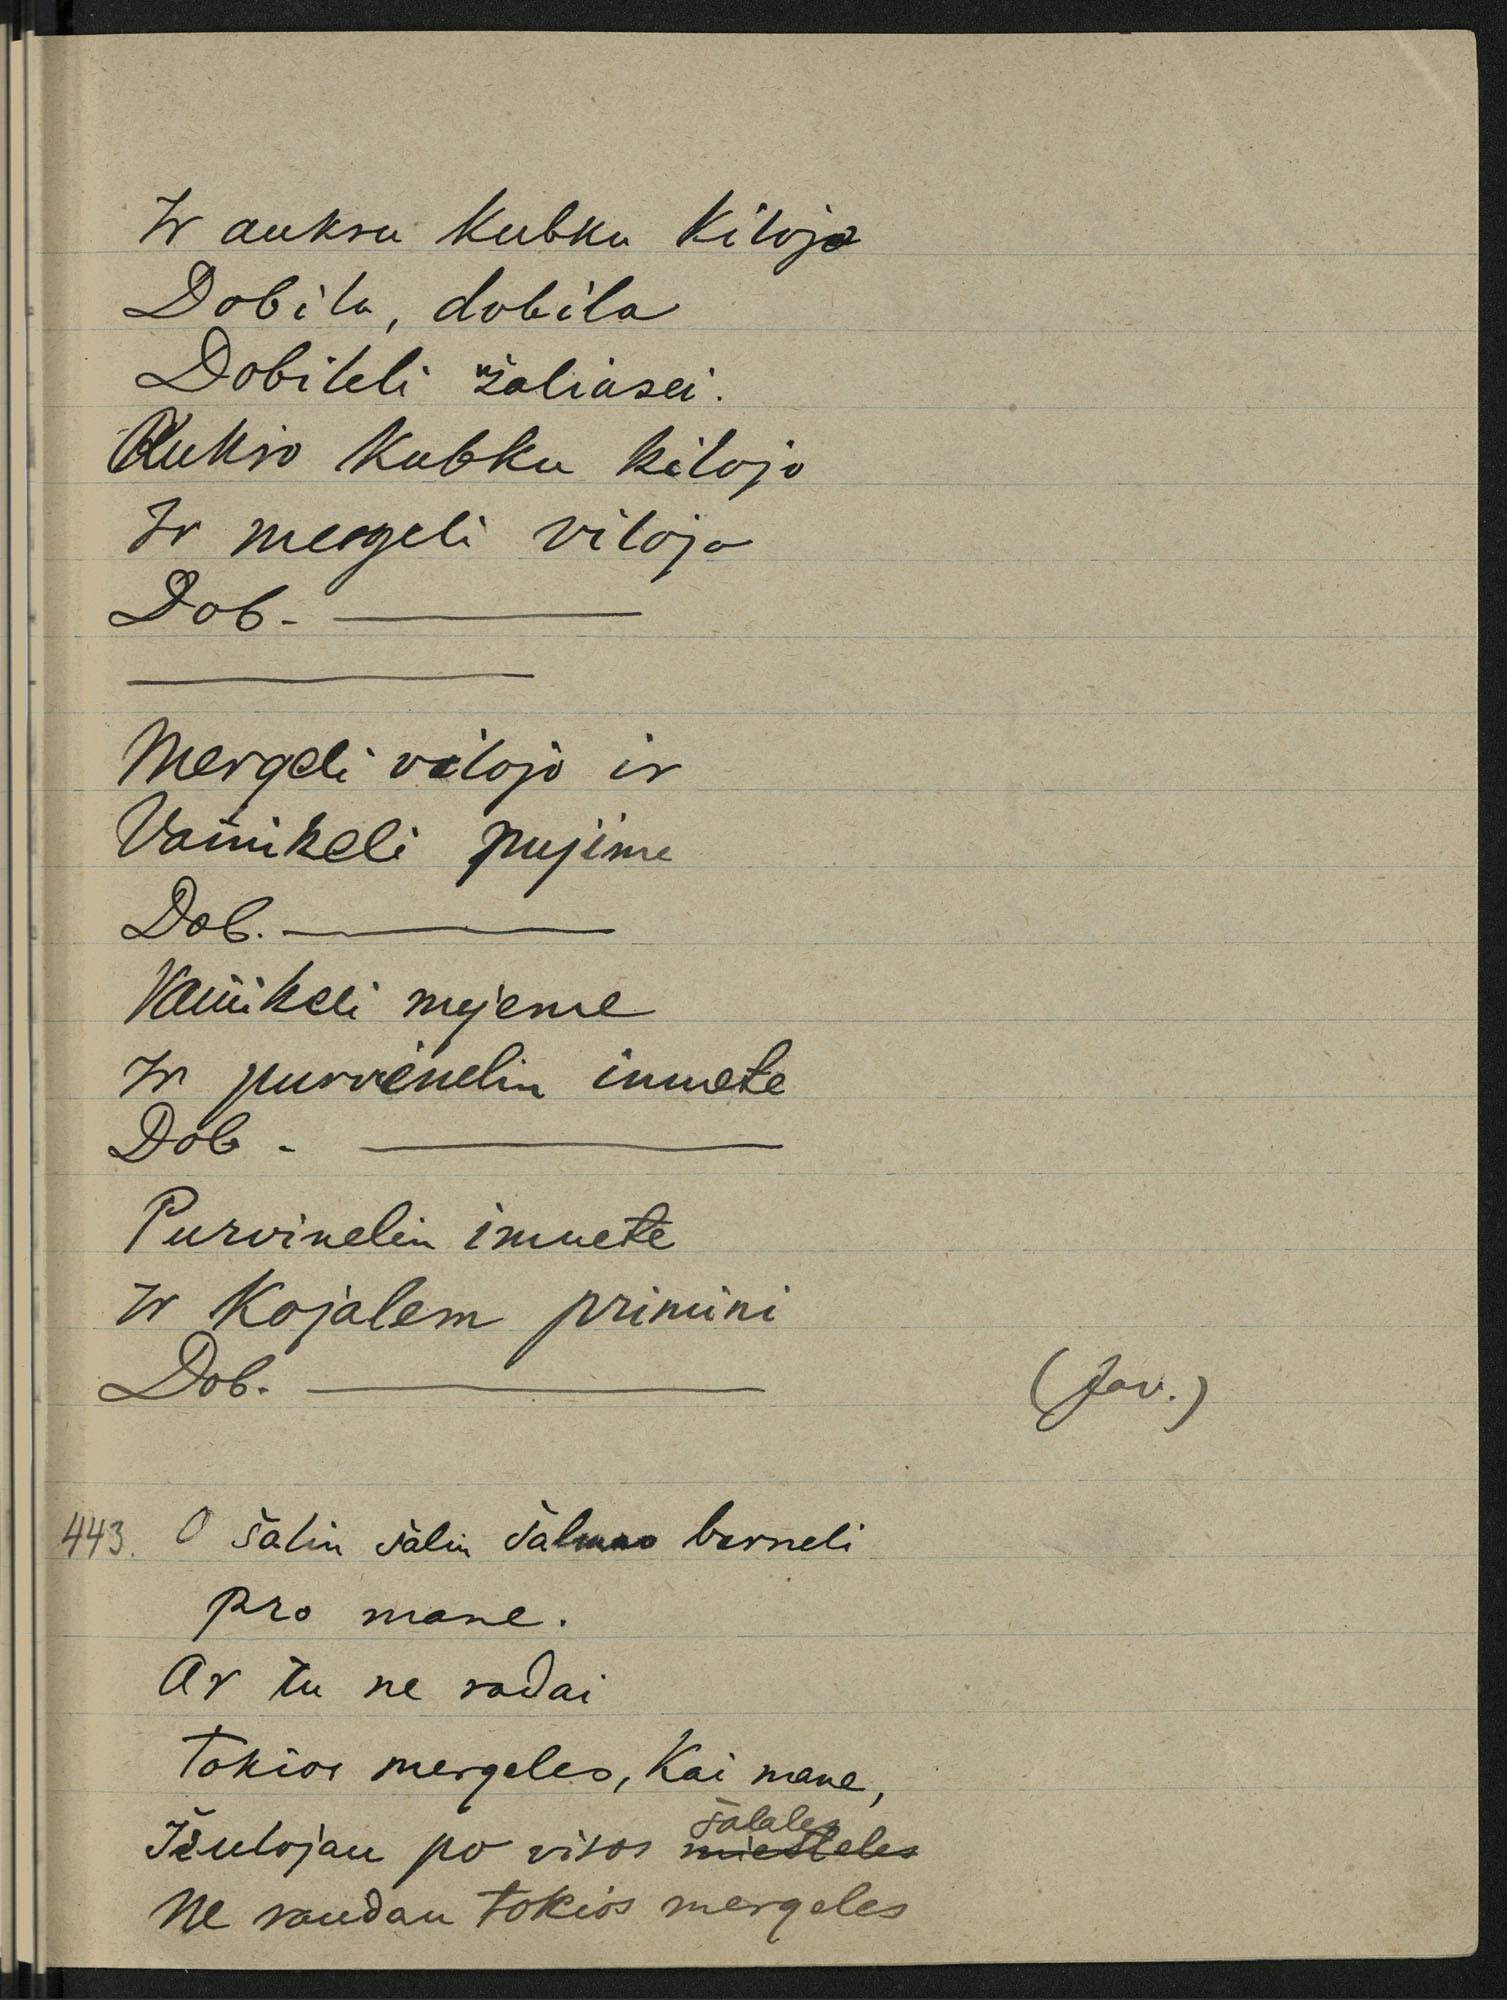 Ir auksu Kubku Kilojo
Dobila, dobila
Dobileli žaliasei.
Aukso Kubku kilojo
Ir mergeli vilojo
Dob. ———
Mergeli vilojo ir
Vainikeli pujime
Dob. ———
Vainikeli nujeme
Ir purvinelin inmete
Dob. ———
Purvinelin inmete
Ir Kojalem primini
Dob. ———
(Jav.)
443. O šalin šalin šalmao berneli
pro mane.
Ar tu ne radai
tokios mergeles, Kai mane,
šalales
Išulojau po visos miesteles
Ne raudau tokios mergeles